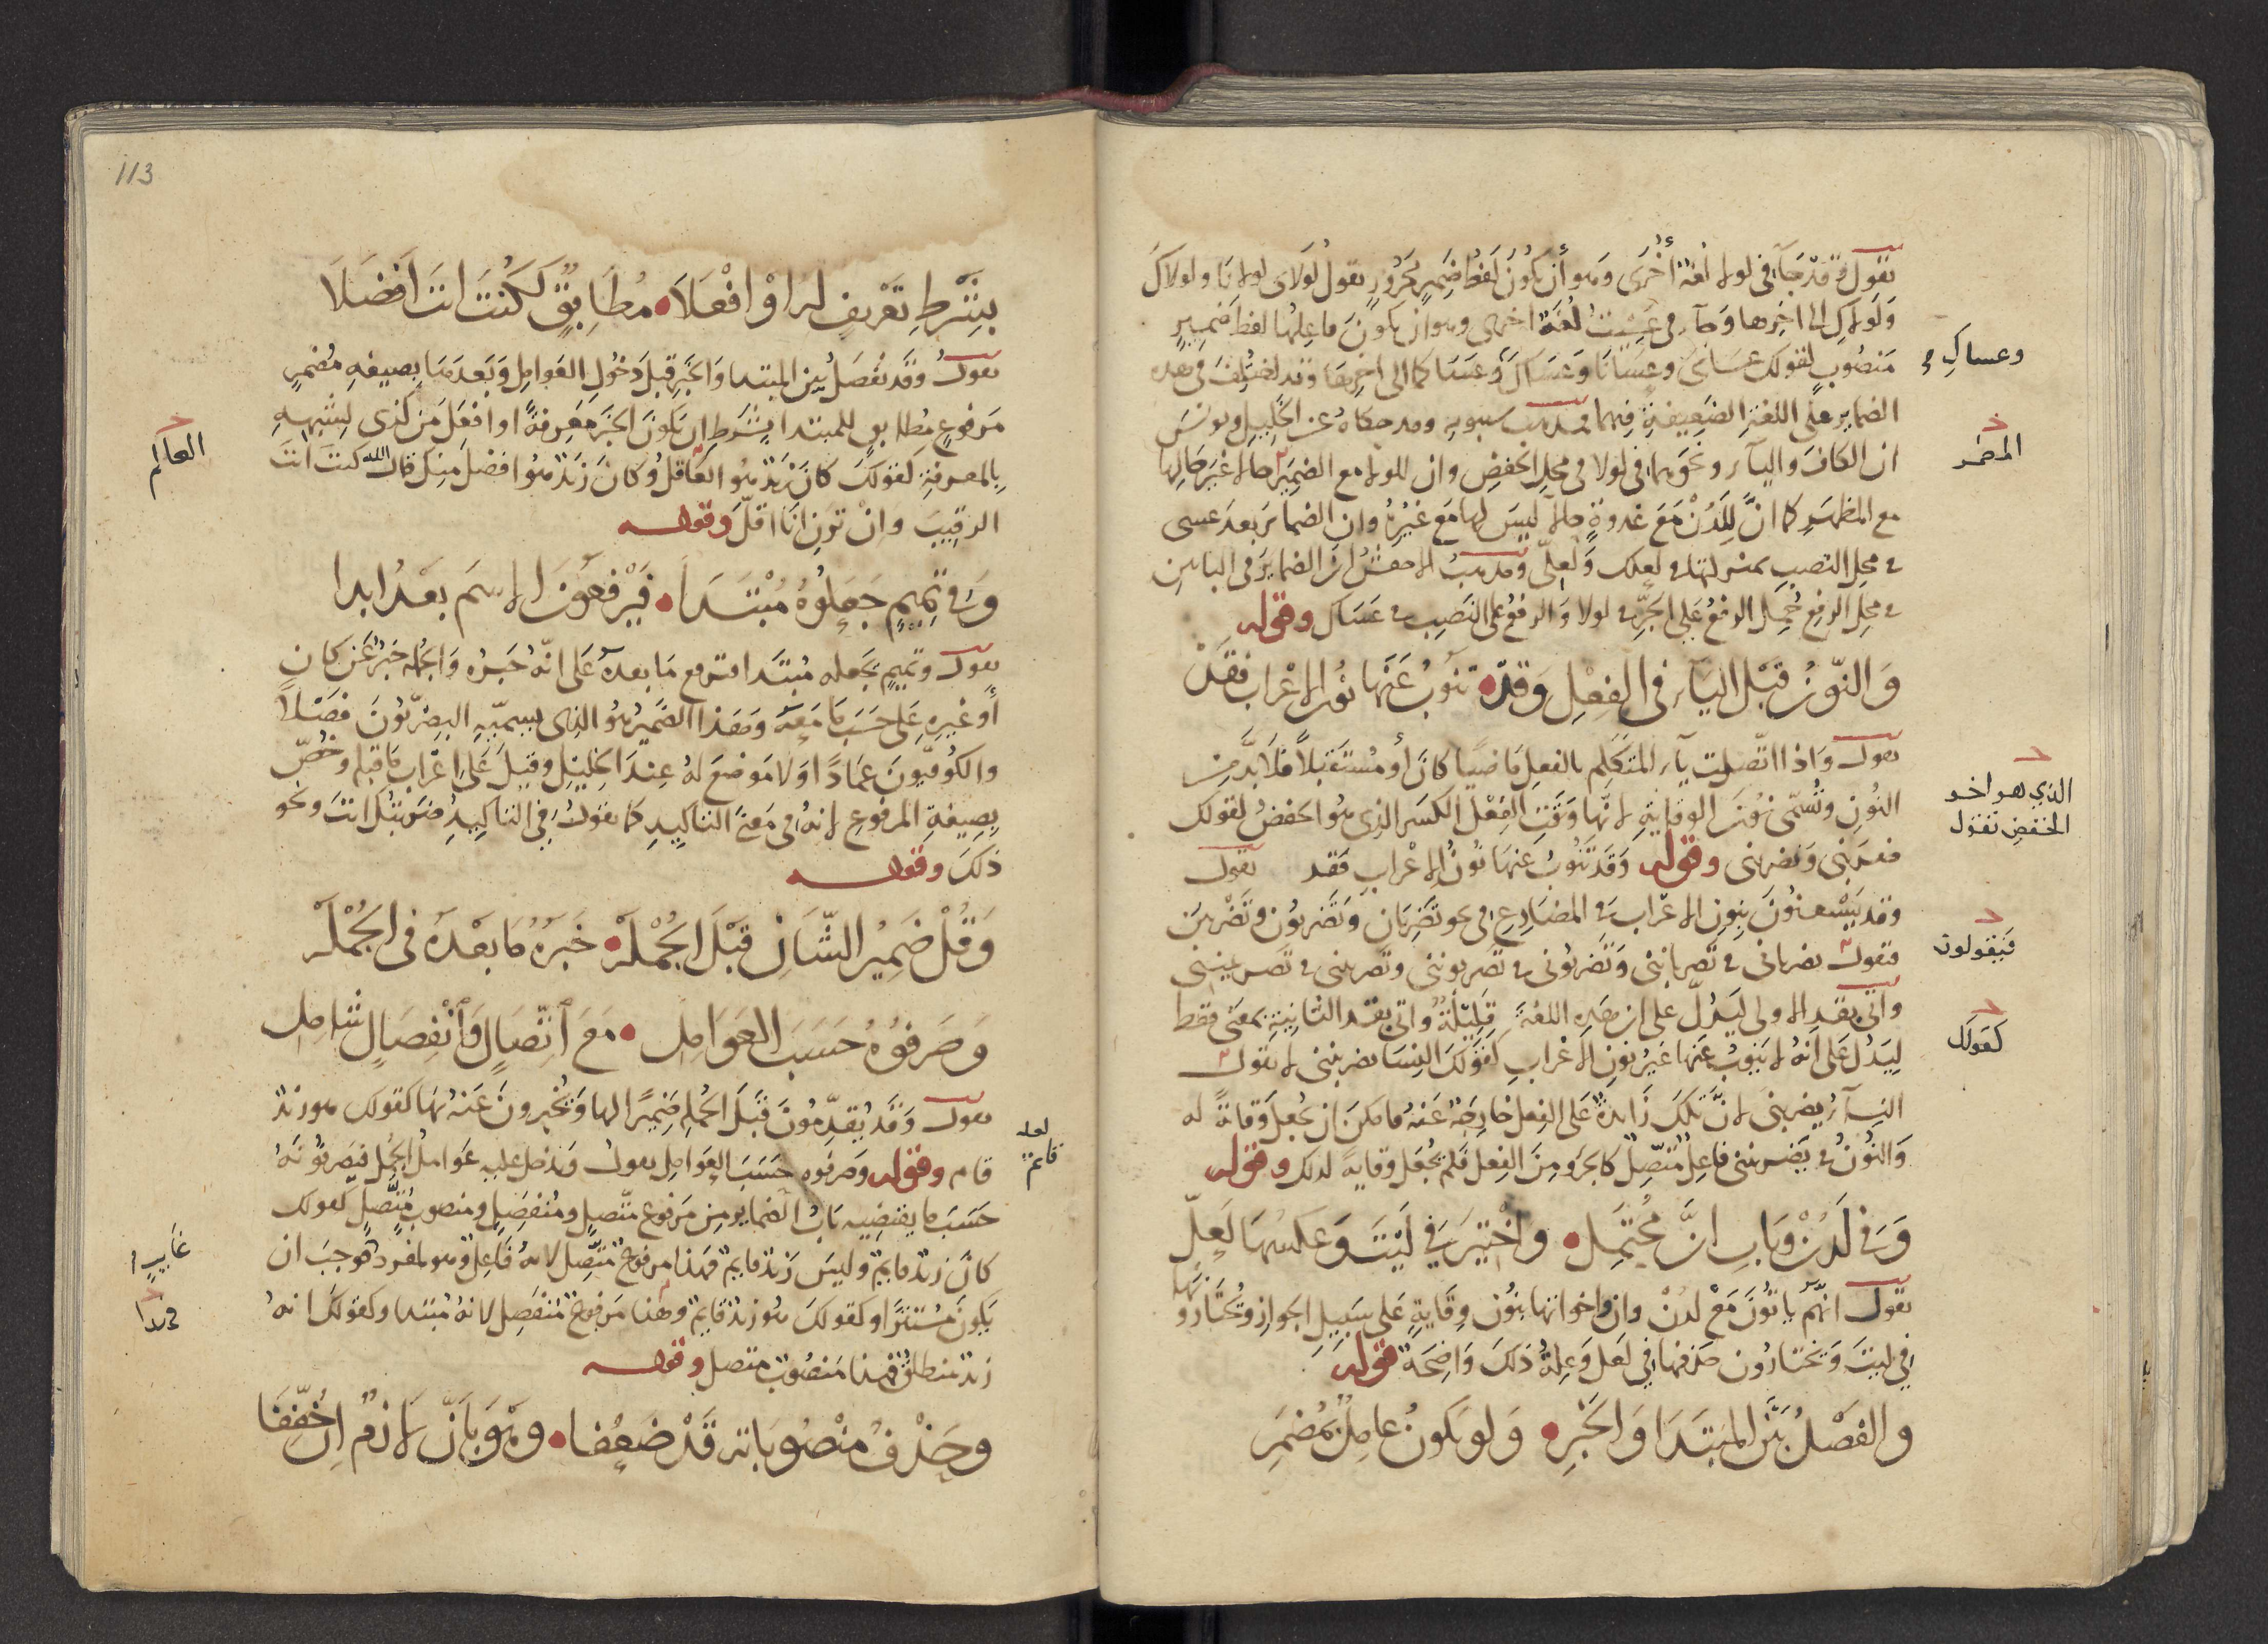 يقول وقد جآء في لولا لغة أخرى وهو أن يكون لفظا ضمير مجرور تقول لولاى لولانا ولولاك
ولولاكِ الى اخرها وجآء في عسيت لغة اخرى وهو ان يكون فاعلها لفظ ضمير
منصوب كقولك عساى وعسانا وعساك وعساكما الى اخرها وقد اختلف في هذه
وعساكِ
الضماير على اللغة الضعيفة فيهما فمذهب سيبويه وقد حكاه عن الخليل ويونس
ان الكاف واليآء ونحوهما في لولا في محل الخفض وان للولا مع الضمير حالا غير حالها
المضمر
مع المظهر كما انّ للدن مع غدوة حالا ليس لها مع غيره وان الضماير بعد عسى
في محل النصب بمنزلتها في لعلك ولعلى ومذهب الاخفش ان الضماير في البابين
في محل الرفع حُمل الرفع على الجرّ في لولا والرفع على النصب في عساك وقوله
وَالنّونُ قَبْل اليآء في الفِعْلِ وَقَدْ تنُوبُ عَنْهَا نُونُ الاعْراب فَقَدْ
يقول واذا اتّصلت يآء المتكلم بالفعل ماضيا كان أو مستقبلاً فلا بدّ من
النون وتُسمّى نون الوقاية لانها وقت الفعل الكسر الذي هو الخفض كقولك
الذي هو اخو
الخفض تقول
ضربنى ويضربنى وقوله وقد تنوب عنها نون الاعراب فقد يقول
وقد يستغنون بنون الاعراب في المضارع في نحو تضربان وتضربون وتضربين
فتقول تضربانى في تضرباننى وتضربونى في تضربوننى وتضربينى في تضربيننى
فيقولون
واتى بقد الاولى ليدلّ على ان هذه اللغة قليلة واتى بقد الثانية بمعنى فقط
ليدل على انه لا ينوب عنها غير نون الاعراب كقولك النسا يضربننى لا تقول
كقولك
النسآء يضربنى لانّ تلك زايدة على الفعل خارجة عنه فامكن ان تجعل وقاية له
والنون في يضربننى فاعل متّصل كالجزو من الفعل فلم يجعل وقاية لذلك وقوله
وَفي لَدُنْ وبَابِ انَّ مُحْتَمِل وَاخْتِيرَ في لَيْتَ وَعَكسُهَا لَعلّ
يقول انهم ياتون مع لدن وان واخواتها بنون وقاية على سبيل الجواز ويختارونها
في ليت ويختارون حذفها في لعل وعلة ذلك واضحة قوله
والفَصْلُ بَيْن المبتَدَا وَالخَبَرِ وَلو يَكونُ عامِلٌ بمُضمَرِ
113
بِشَرْطِ تَعْريفٍ لهُ اوْ افْعَلَا مُطَابِقٌ كَكُنتَ انتَ اَفضَلَا
يقول وقد يفصل بين المبتدا والخبر قبل دخول العوامل وبعدها بصيغة مضمر
مرفوع مطابق للمبتدا بشرط ان يكون الخبر معرفة او افعل من كذى لشبهه
بالمعرفة كقولك كان زيد هو العاقل وكان زيد هو افضل منك قال الله كنت انت
العالم
الرقيب وان ترن انا اقلّ وقوله
وَفي تَمِيمٍ جَعَلُوهُ مُبْتَدَا فَيَرْفَعونَ الاسمَ بَعْدُ ابدا
يقول وتميم تجعله مبتدا فترفع ما بعده على انه خبره والجملة خبر عن كان
أو غيره على حسب ما معه وهذا الضمير هو الذى يسميه البصريّون فصلاً
والكوفيون عمادًا ولا موضع له عند الخليل وقيل على اعراب ما قبله وخُصّ
بصيغة المرفوع لانه في معنى التاكيد كما تقول في التاكيد ضربتك انت ونحو
ذلك وقوله
وَقُلْ ضَمِيرُ الشّانِ قَبْلَ الجُمْلَهْ خَبَرُهُ مَا بَعْدَهُ في الجُمْلَهْ
وَصَرفوُهُ حَسَبَ العَوَامِلِ مَعَ اتِّصَالٍ وَانْفِصَالٍ شامِل
يقول وقد يقدّمون قبل الجمل ضميرًا لها ويخبرون عنه بها كقولك هو زيد
قام وقوله وصرفوه حسب العوامل يقول وتدخل عليه عوامل الجمل فيصرفونه
لعله
قايم
حسب ما يقتضيه باب الضماير من مرفوع متّصل ومنفصل ومنصوب متّصل كقولك
كان زيد قايم وليس زيد قايم فهذا مرفوع متّصل لانه فاعل وهو لمفرد فوجب ان
غايب
يكون مستترا او كقولك هو زيد قايم وهذا مرفوع منفصل لانه مبتدا وكقولك انه
زيد منطلق فهذا منصوب متصل وقوله
وحَذْفُ مَنْصُوبَاتِهِ قَدْ ضَعُفا وَهْوَ بِأنَّ لَازمٌ اِنْ خُفّفَا